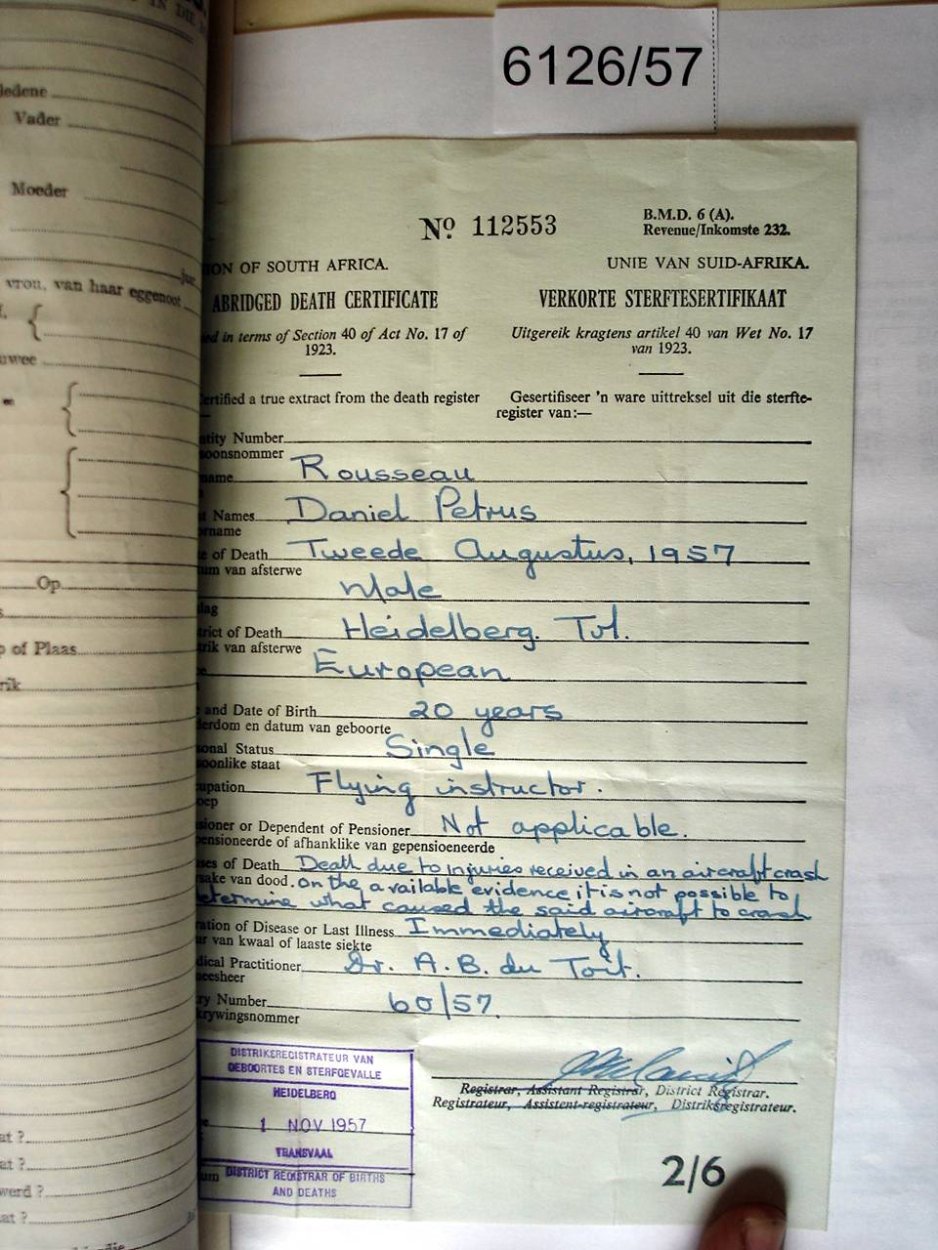 IN DIE
6126/57
ledene
Vader
Moeder
vrou, van haar eggenoot
uwee
Op
of Plaas
rik
at ?
at ?
werd ?
at ?
No 112553
B.M.D. 6 (A).
Revenue/Inkomste 232.
ION OF SOUTH AFRICA.
UNIE VAN SUID-AFRIKA.
ABRIDGED DEATH CERTIFICATE
VERKORTE STERFTESERTIFIKAAT
ed in terms of Section 40 of Act No. 17 of
1923.
Uitgereik kragtens artikel 40 van Wet No. 17
van 1923.
ertified a true extract from the death register
Gesertifiseer 'n ware uittreksel uit die sterfte-
register van:—
ntity Number
soonsnommer
name Rousseau
t Names Daniel Petrus
orname
e of Death Tweede Augustus, 1957
um van afsterwe
Male
lag
trict of Death Heidelberg. Tvl.
rik van afsterwe
European
and Date of Birth 20 years
derdom en datum van geboorte
sonal Status Single
soonlike staat
upation Flying instructor.
oep
sioner or Dependent of Pensioner Not applicable.
pensioneerde of afhanklike van gepensioeneerde
ses of Death Death due to injuries received in an aircraft crash
sake van dood. On the available evidence it is not possible to
determine what caused the said aircraft to crash
ration of Disease or Last Illness Immediately
ur van kwaal of laaste siekte
dical Practitioner Dr. A. B. du Toit.
eesheer
ry Number 60/57.
krywingsnommer
DISTRIKSREGISTRATEUR VAN
GEBOORTES EN STERFGEVALLE
HEIDELBERG
1 NOV 1957
TRANSVAAL
um DISTRICT REGISTRAR OF BIRTHS
AND DEATHS
Registrar, Assistant Registrar, District Registrar.
Registrateur, Assistent-registrateur, Distriksregistrateur.
2/6